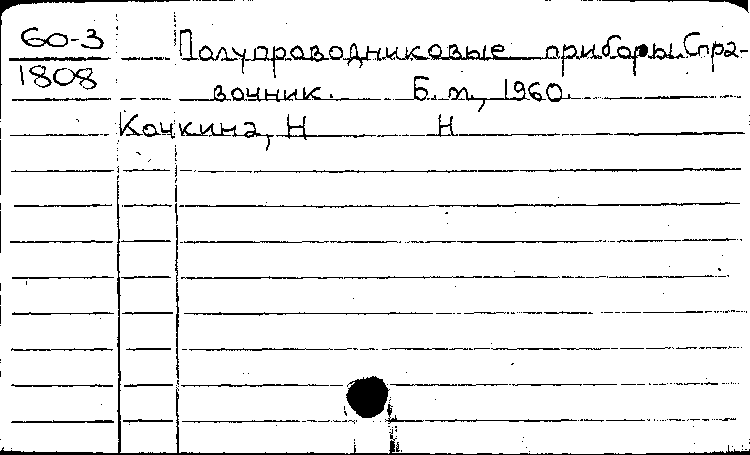 60-3 Полупроводниковые приборы. Спра-
1808 вочник. Б.м., 1960.
Кочкина, Н Н